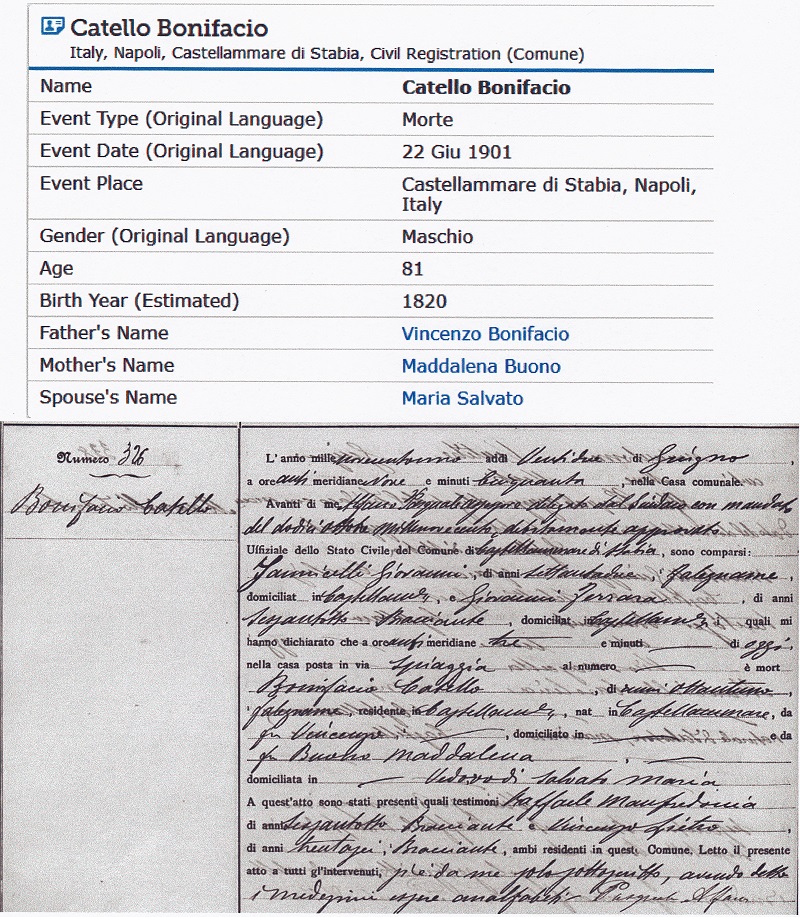 Catello Bonifacio
Italy, Napoli, Castellammare di Stabia, Civil Registration (Comune)
Name Catello Bonifacio
Event Type (Original Language) Morte
Event Date (Original Language) 22 Giu 1901
Event Place Castellammare di Stabia, Napoli,
Italy
Gender (Original Language) Maschio
Age 81
Birth Year (Estimated) 1820
Father's Name Vincenzo Bonifacio
Mother's Name Maddalena Buono
Spouse's Name Maria Salvato
Numero 326
Bonifacio Catello
L'anno millenovecentouno addì Ventidue di Giugno,
a ore anti meridiane Nove e minuti Cinquanta, nella Casa comunale.
Avanti di me delegato dal Sindaco con mandato
del dodici ottobre millenovecento, debitamente approvato
Uffiziale dello Stato Civile del Comune di Castellammare di Stabia, sono comparsi:
Giovanni, di anni, falegname,
domiciliat in Castellamre, e Giovanni Ferrara, di anni
sessantotto Bracciante, domiciliat in Castellamre, i quali mi
hanno dichiarato che a ore anti meridiane tre e minuti di oggi,
nella casa posta in via Spiaggia al numero è mort
Bonifacio Catello, di anni ottantuno,
falegname, residente in Castellamre, nat in Castellammare, da
fu Vincenzo, domiciliato in e da
fu Buono Maddalena,
domiciliata in Vedovo di Salvato Maria
A quest'atto sono stati presenti quali testimoni Raffaele Manfredonia
di anni sessantotto Bracciante e Vincenzo,
di anni trentasei, Bracciante, ambi residenti in questo Comune. Letto il presente
atto a tutti gl'intervenuti, si è da me solo sottoscritto, avendo detto
i medesimi essere analfabeti Pasquale